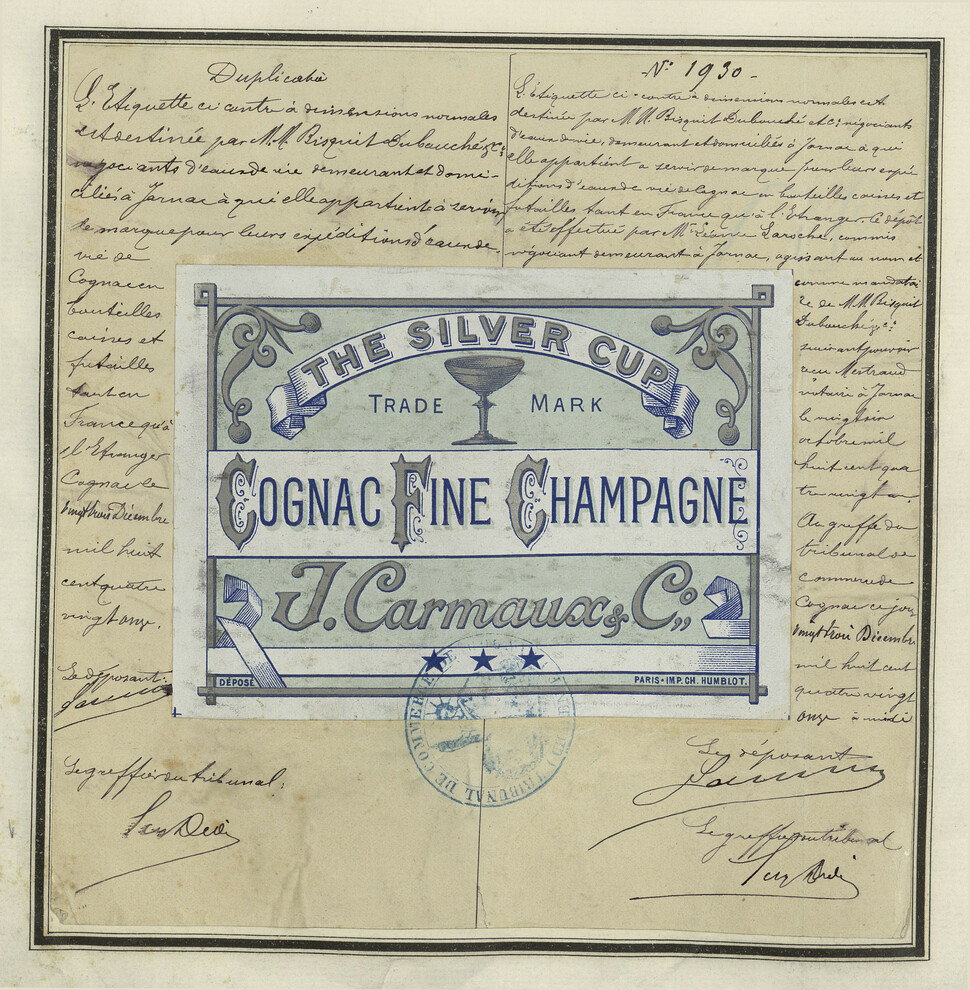 Duplicata
L'Etiquette ci contre à dimensions normales
est destinée par M.M. Bisquit Dubouché & Cie
négociants d'eaux de vie demeurant et domi-
ciliés à Jarnac à qui elle appartient à servir
de marque pour leurs expéditions d'eaux de
vie de
Cognac en
bouteilles
caisses et
futailles
tant en
France qu'à
l'Etranger
Cognac le
vingt trois Décembre
mil huit
cent quatre
vingt onze.
Le déposant:
Le greffier du tribunal:
N° 1930 -
L'Etiquette ci-contre à dimensions normales est
destinée par M.M. Bisquit Dubouché et Cie négociants
d'eaux de vie, demeurant et domiciliés à Jarnac à qui
elle appartient a servir de marque pour leurs expé
ditions d'eaux de vie de Cognac en bouteilles caisses et
futailles tant en France qu'à l'Etranger. Le dépôt
a été effectué par Mr Laroche, commis
négociant demeurant à Jarnac, agissant au nom et
comme mandatai
re de M.M. Bisquit
Dubouché & Cie
suivant pouvoir
notaire à Jarnac
le vingt six
octobre mil
huit cent qua
tre vingt
Au greffe du
tribunal de
commerce de
Cognac ce jour
vingt trois Décembre
mil huit cent
quatre vingt
onze à midi
Le déposant
Le greffier du tribunal
THE SILVER CUP
TRADE MARK
COGNAC FINE CHAMPAGNE
J. Carmaux & Co
DÉPOSÉ
PARIS - IMP. CH. HUMBLOT.
TRIBUNAL DE COMMERCE DE